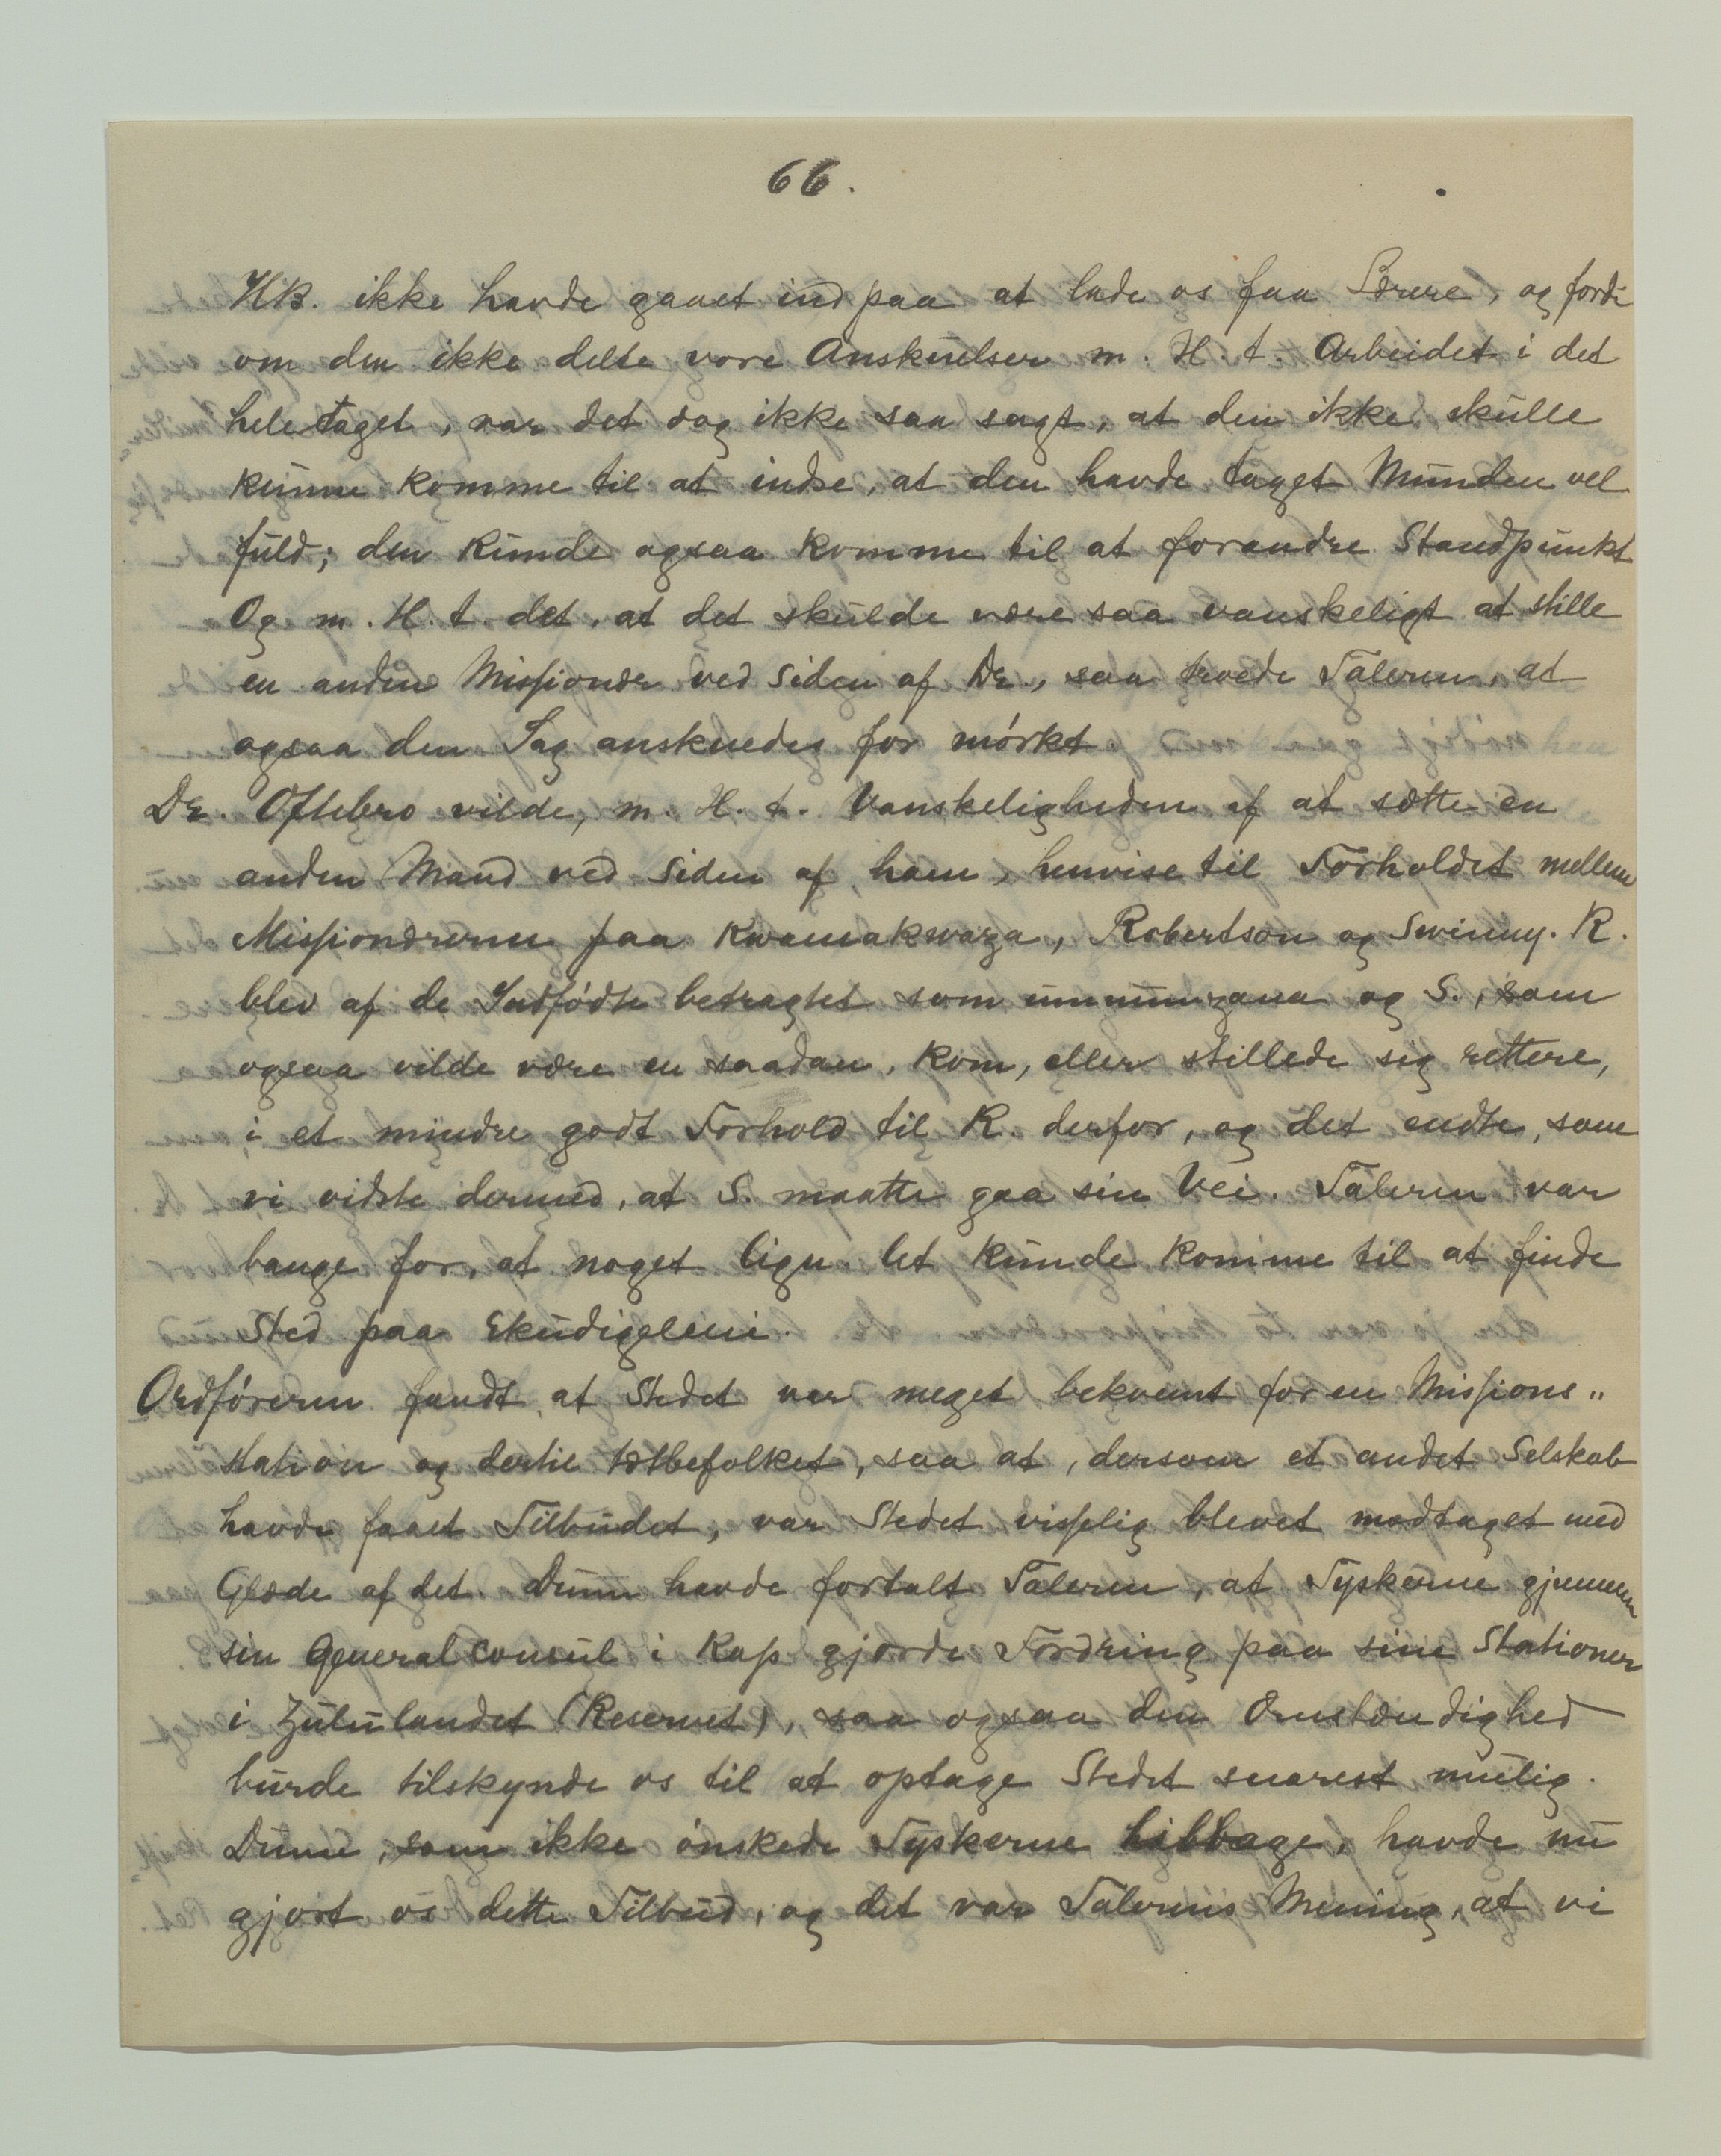 66.
HB. ikke havde gaaet ind paa at lade os faa Lærere, og fordi
om den ikke delte vore Anskuelser m. H. t. Arbeidet i det
heletaget, var det dog ikke saa sagt, at den ikke skulle
kunne komme til at indse, at den havde taget Munden vel
fuld; den kunde ogsaa komme til at forandre Standpunkt
Og m. H. t. det, at det skulde være saa vanskeligt at stille
en anden Missionær ved Siden af Dr., saa troede Taleren, at
ogsaa den Sag anskuedes for mørkt.
Dr. Oftebro vilde, m. H. t. Vanskeligheden af at sætte en
anden Mand ved Siden af ham, henvise til Forholdet mellem
Missionærerne paa Kwamakwaza, Robertson og Swinny. R.
blev af de Indfødte betragtet som umnumzana og S., som
ogsaa vilde være en saadan, kom, eller stillede sig rettere,
i et mindre godt Forhold til R. derfor, og det endte, som
vi vidste dermed, at S. maatte gaa sin Vei. Taleren var
bange for, at noget lign. let kunde komme til at finde
Sted paa Ekudigeleni.
Ordføreren fandt, at Stedet var meget bekvemt for en Missions„
station og dertil tætbefolket, saa at, dersom et andet Selskab
havde faaet Tilbudet, var Stedet visselig blevet modtaget med
Glæde af det. Dunn havde fortalt Taleren, at Tyskerne gjennem
sin Generalconsul i Kap gjorde Fordring paa sine Stationer
i Zululandet (Reservet), saa ogsaa den Omstændighed
burde tilskynde os til at optage Stedet snarest mulig.
Dunn, som ikke ønskede Tyskerne tilbage, havde nu
gjort os dette Tilbud, og det var Talerens Mening, at vi